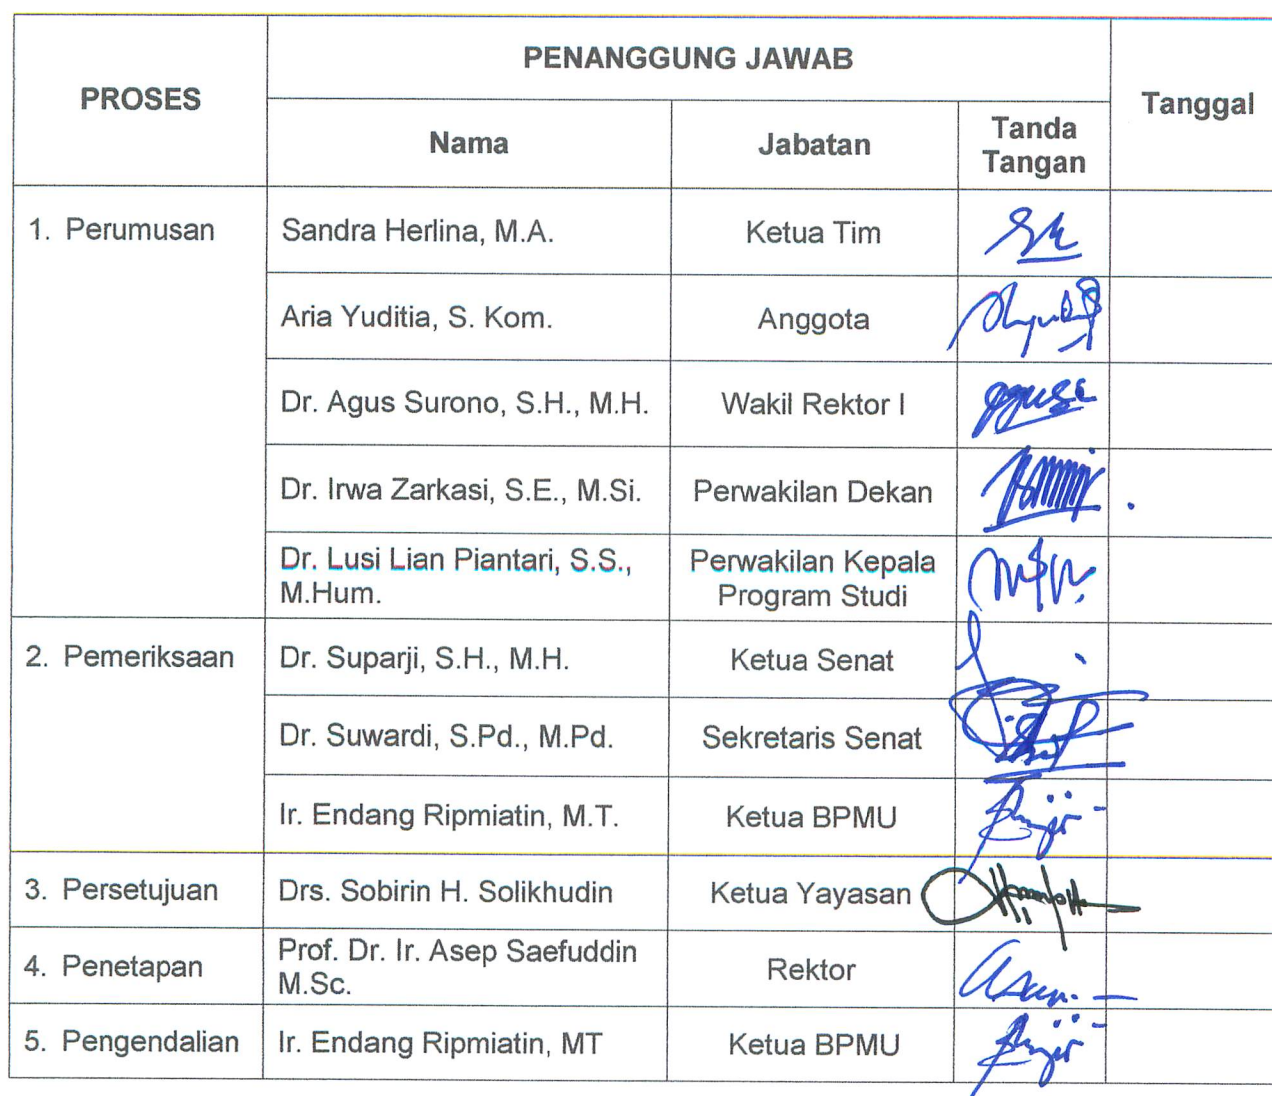 PROSES
PENANGGUNG JAWAB
Tanggal
Nama
Jabatan
Tanda
Tangan
1. Perumusan
Sandra Herlina, M.A.
Ketua Tim
Aria Yuditia, S. Kom.
Anggota
Dr. Agus Surono, S.H., M.H.
Wakil Rektor I
Dr. Irwa Zarkasi, S.E., M.Si.
Perwakilan Dekan
Dr. Lusi Lian Piantari, S.S.,
M.Hum.
Perwakilan Kepala
Program Studi
2. Pemeriksaan
Dr. Suparji, S.H., M.H.
Ketua Senat
Dr. Suwardi, S.Pd., M.Pd.
Sekretaris Senat
Ir. Endang Ripmiatin, M.T.
Ketua BPMU
3. Persetujuan
Drs. Sobirin H. Solikhudin
Ketua Yayasan
4. Penetapan
Prof. Dr. Ir. Asep Saefuddin
M.Sc.
Rektor
5. Pengendalian
Ir. Endang Ripmiatin, MT
Ketua BPMU